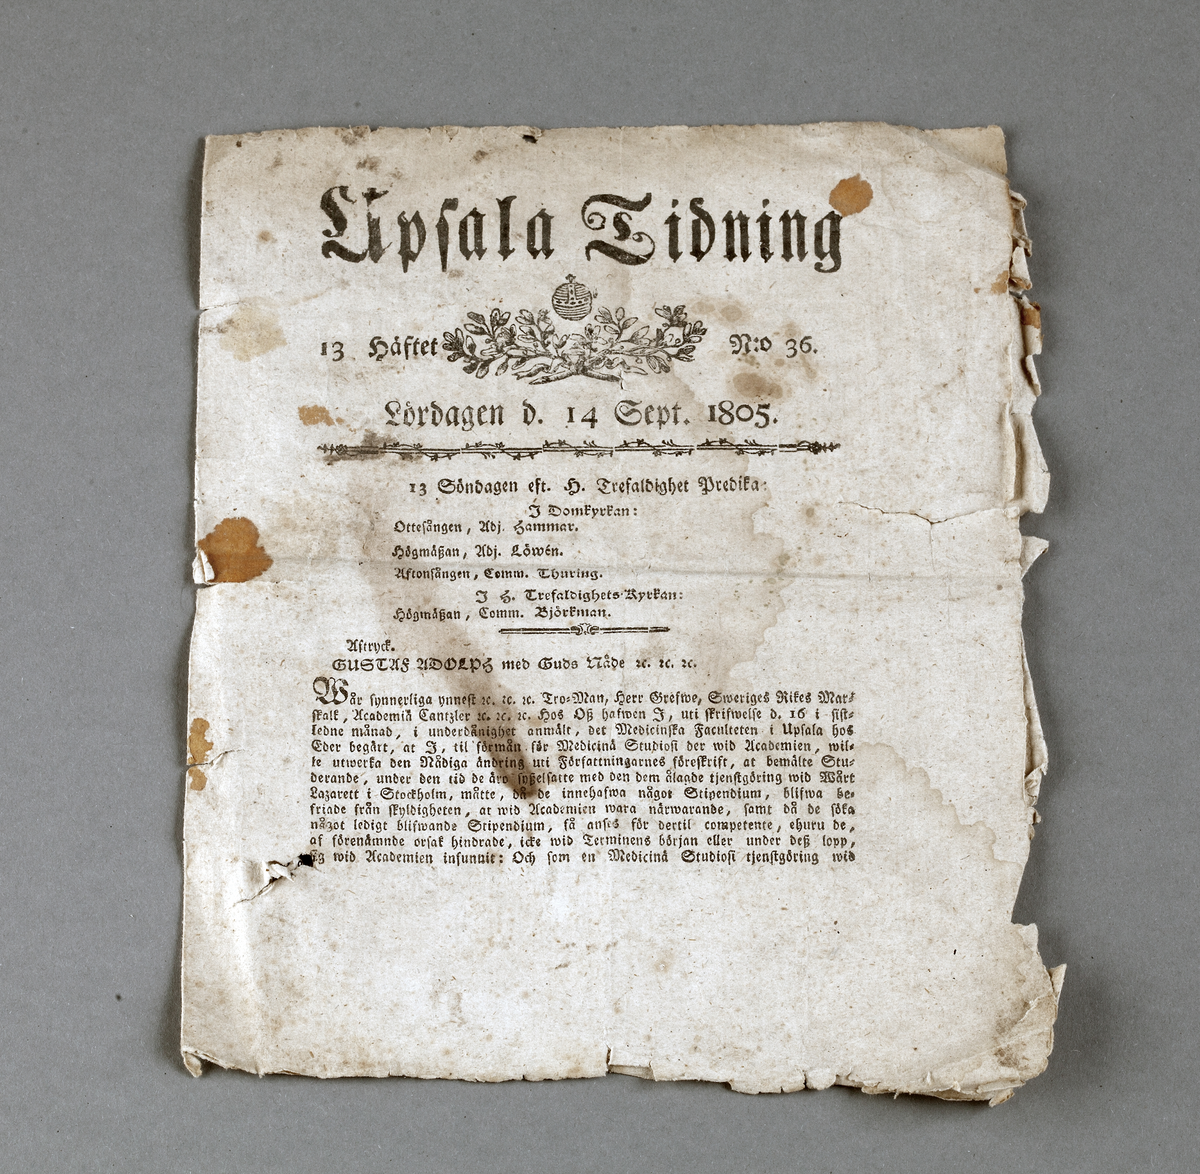 Upsala Tidning
13 Häftet N:o 36.
Lördagen d. 14 Sept. 1805.
13 Söndagen eft. H. Trefaldighet Predika:
I Domkyrkan:
Ottesången, Adj. Hammar.
Högmäßan, Adj. Löwén.
Aftonsången, Comm. Thuring.
I H. Trefaldighets-Kyrkan:
Högmäßan, Comm. Björkman.
Aftryck.
GUSTAF ADOLPH med Guds Nåde ꝛc. ꝛc. ꝛc.
Wår synnerliga ynnest ꝛc. ꝛc. ꝛc. Tro-Man, Herr Grefwe, Sweriges Rikes Mar-
skalk, Academiä Cantzler ꝛc. ꝛc. ꝛc. Hos Oß hafwen I, uti skrifwelse d. 16 i sist-
ledne månad, i underdånighet anmält, det Medicinska Faculteten i Upsala hos
Eder begärt, at I, til förmån för Medicinä Studiosi der wid Academien, wil-
le utwerka den Nådiga ändring uti Författningarnes föreskrift, at bemälte Stu-
derande, under den tid de äro syßelsatte med den dem ålagde tjenstgöring wid Wårt
Lazarett i Stockholm, måtte, då de innehafwa något Stipendium, blifwa be-
friade från skyldigheten, at wid Academien wara närwarande, samt då de söka
något ledigt blifwande Stipendium, få anses för dertil competente, ehuru de,
af förenämnde orsak hindrade, icke wid Terminens början eller under deß lopp,
sig wid Academien infunnit: Och som en Medicinä Studiosi tjenstgöring wid